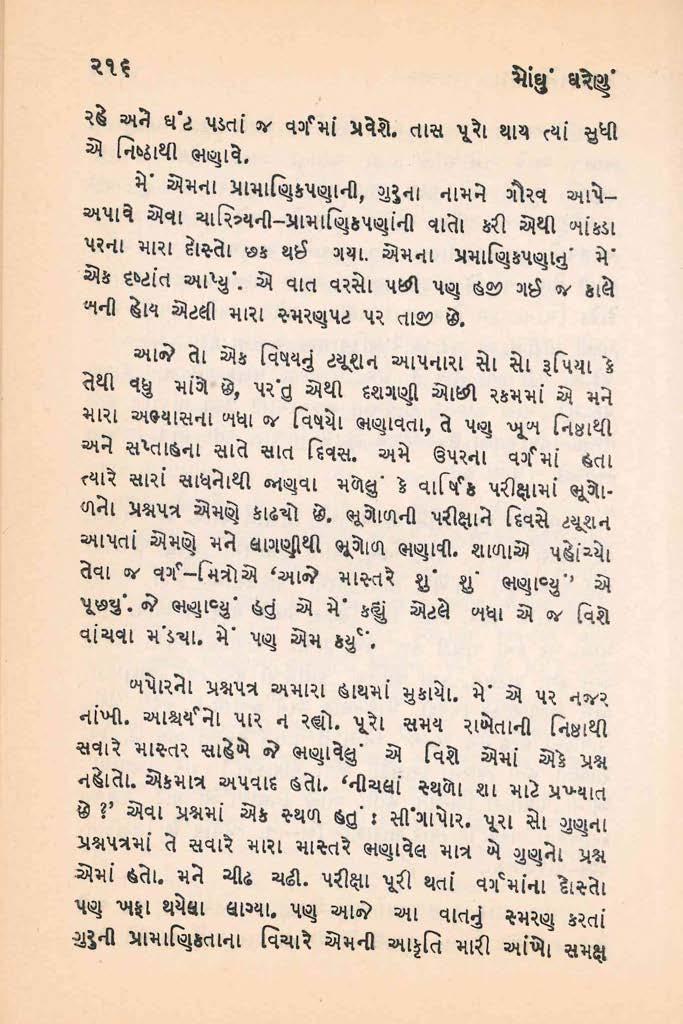 ૨૧૬
મોંઘું ઘરેણું
રહે અને ઘંટ પડતાં જ વર્ગમાં પ્રવેશે. તાસ પૂરો થાય ત્યાં સુધી
એ નિષ્ઠાથી ભણાવે.
મેં એમના પ્રામાણિકપણાની, ગુરુના નામને ગૌરવ આપે–
અપાવે એવા ચારિત્ર્યની–પ્રામાણિકપણાંની વાતો કરી એથી બાંકડા
પરના મારા દોસ્તો છક થઈ ગયા. એમના પ્રમાણિકપણાનું મેં
એક દૃષ્ટાંત આપ્યું. એ વાત વરસો પછી પણ હજી ગઈ જ કાલે
બની હોય એટલી મારા સ્મરણપટ પર તાજી છે.
આજે તો એક વિષયનું ટયૂશન આપનારા સો સો રૂપિયા કે
તેથી વધુ માંગે છે, પરંતુ એથી દશગણી ઓછી રકમમાં એ મને
મારા અભ્યાસના બધા જ વિષયો ભણાવતા, તે પણ ખૂબ નિષ્ઠાથી
અને સપ્તાહના સાતે સાત દિવસ. અમે ઉપરના વર્ગમાં હતા
ત્યારે સારાં સાધનોથી જાણવા મળેલું કે વાર્ષિક પરીક્ષામાં ભૂગો-
ળનો પ્રશ્નપત્ર એમણે કાઢયો છે. ભૂગોળની પરીક્ષાને દિવસે ટયૂશન
આપતાં એમણે મને લાગણીથી ભૂગોળ ભણાવી. શાળાએ પહોંચ્યો
તેવા જ વર્ગ–મિત્રોએ ‘આજે માસ્તરે શું શું ભણાવ્યું” એ
પૂછયું. જે ભણાવ્યું હતું એ મેં કહ્યું એટલે બધા એ જ વિશે
વાંચવા મંડયા. મેં પણ એમ કર્યું.
બપોરનો પ્રશ્નપત્ર અમારા હાથમાં મુકાયો. મેં એ પર નજર
નાંખી. આશ્ચર્યનો પાર ન રહ્યો. પૂરો સમય રાખેતાની નિષ્ઠાથી
સવારે માસ્તર સાહેબે જે ભણાવેલું એ વિશે એમાં એકે પ્રશ્ન
નહોતો. એકમાત્ર અપવાદ હતો. ‘નીચલાં સ્થળો શા માટે પ્રખ્યાત
છે ?’ એવા પ્રશ્નમાં એક સ્થળ હતું : સીંગાપોર. પૂરા સો ગુણના
પ્રશ્નપત્રમાં તે સવારે મારા માસ્તરે ભણાવેલ માત્ર બે ગુણનો પ્રશ્ન
એમાં હતો. મને ચીઢ ચઢી. પરીક્ષા પૂરી થતાં વર્ગમાંના દોસ્તો
પણ ખફા થયેલા લાગ્યા. પણ આજે આ વાતનું સ્મરણ કરતાં
ગુરુની પ્રામાણિકતાના વિચારે એમની આકૃતિ મારી આંખો સમક્ષ